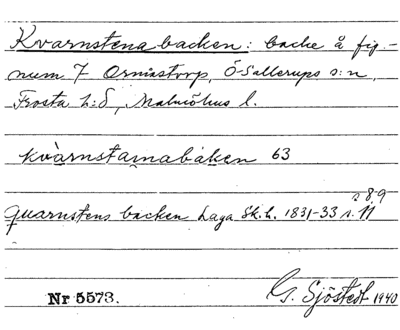 Kvarnstena backen: backe å fig-
num 7 Ormastorp, Ö-Sallerups s:n,
Frosta h:d, Malmöhus l.
kvàrnstarnabàken 63
s 89
Quarnstens backen Laga Sk.h. 1831-33 s. 11
Nr 5573. G. Sjöstedt 1940